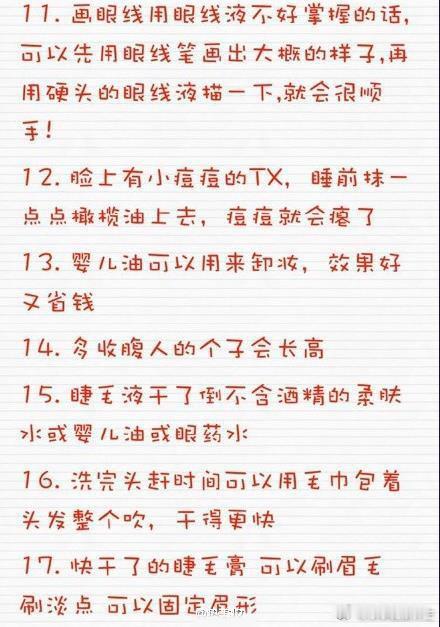 11. 画眼线用眼线液不好掌握的话,
可以先用眼线笔画出大概的样子,再
用硬头的眼线液描一下,就会很顺
手!
12. 脸上有小痘痘的TX, 睡前抹一
点点橄榄油上去, 痘痘就会瘪了
13. 婴儿油可以用来卸妆, 效果好
又省钱
14. 多收腹人的个子会长高
15. 睫毛液干了倒不含酒精的柔肤
水或婴儿油或眼药水
16. 洗完头赶时间可以用毛巾包着
头发整个吹, 干得更快
17. 快干了的睫毛膏 可以刷眉毛
刷淡点 可以固定眉形